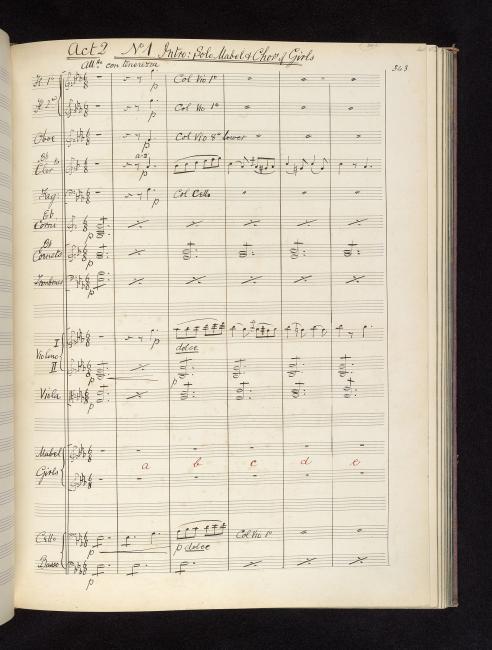 Act 2 No 1 Intro: Solo, Mabel & Chor of Girls
All to con tenerezza
343
Fl 1o p Col Vio 1o
Fl 2o p Col Vio 1o
Oboe p Col Vio 8a lower
Bb Clar a 2 p
Fag: p Col Cello
Eb Corni p
Bb Cornets p
Tromboni p
I p dolce
Violino
II p p
Viola p
Mabel
a b c d e
Girls
Cello p p dolce Col Vio 1o
Basso p